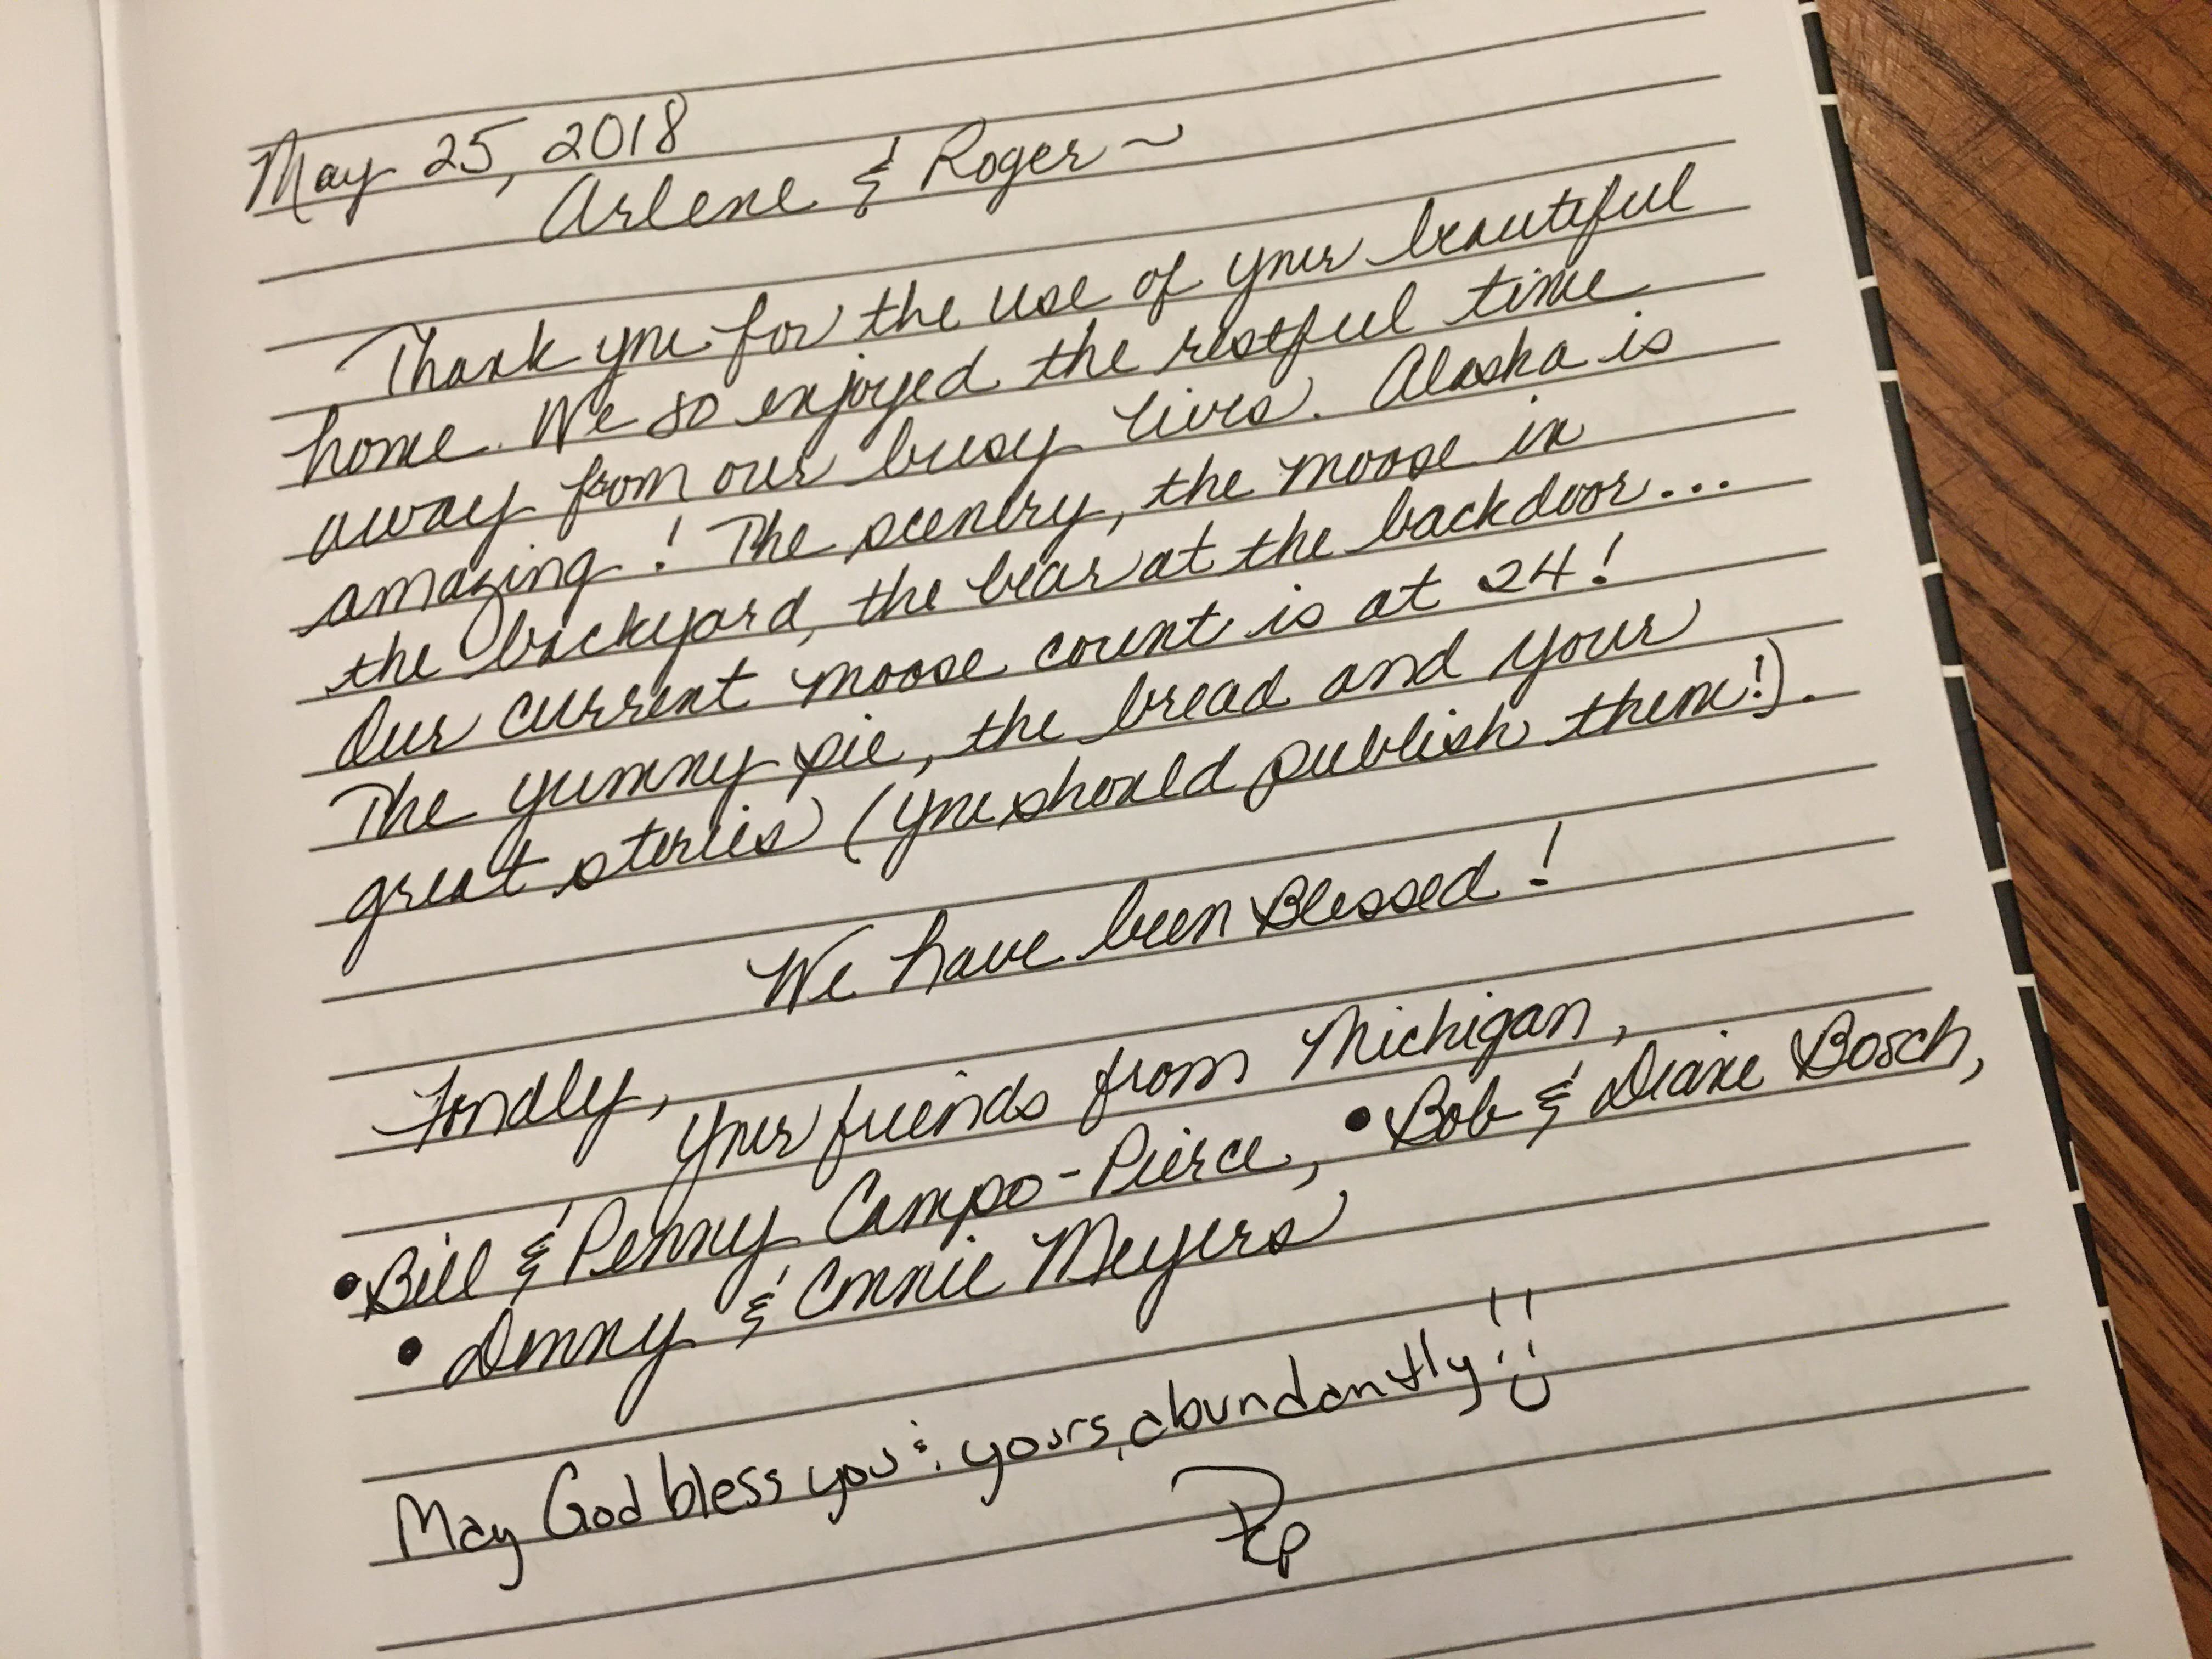 May 25, 2018
Arlene & Roger ~
Thank you for the use of your beautiful
home. We so enjoyed the restful time
away from our busy lives. Alaska is
amazing! The scenery, the moose in
the backyard, the bear at the backdoor...
Our current moose count is at 24!
The yummy pie, the bread and your
great stories (you should publish them!).
We have been Blessed!
Fondly,
Your friends from Michigan,
• Bill & Penny Campo-Pierce, • Bob & Diane Bosch,
• Denny & Connie Meyers
May God bless you & yours, abundantly!! :)
PCP